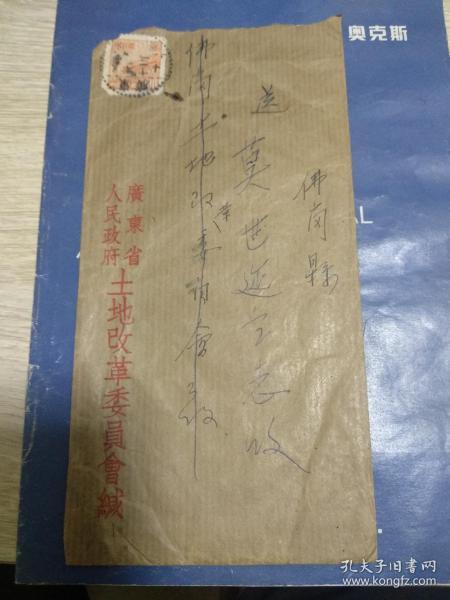 奥克斯
佛岡縣
送 莫世延同志收
佛岡土地改革委員會收
廣東省
人民政府
土地改革委員會緘
AL
孔夫子旧书网
www.kongfz.com